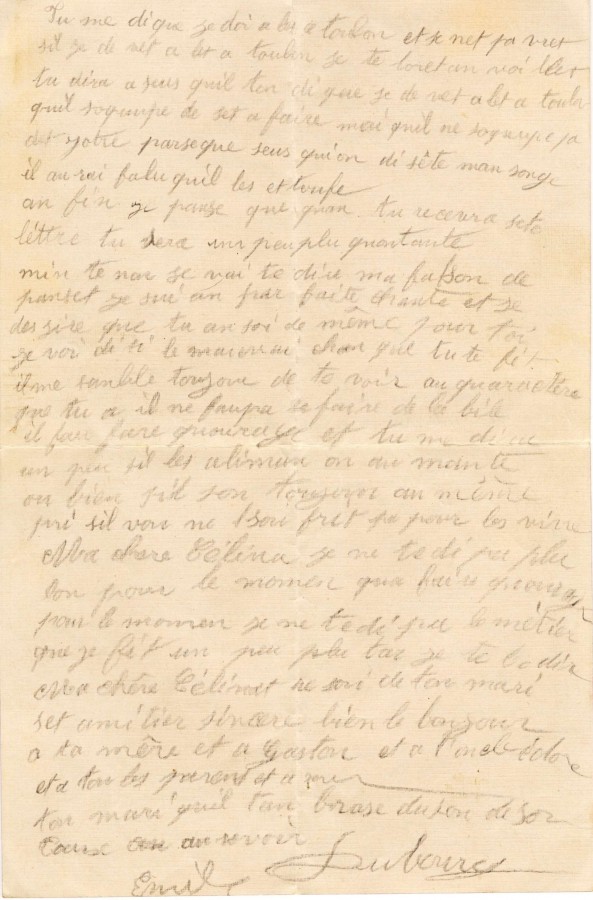 Tu me di que je doi a let a toulon et se net pa vret
sil je de vet a let a toulon je te loret an voi
tu dira a seus quil ton di que je de vet a let a toulon
quil sogunpe de set a faire mai quil ne sogunpe pa
det notre parseque seus qui on di sête man songe
il aurai falu quil les ettoufe
an fin je panse que quan tu recevra sete
léttre tu sera un peu plu quontante
min te nan je vai te dire ma fason de
panset je sui an par faite santé et je
des sire que tu an soi de même pour toi
je voi di si le mauvai chan que tu te fét
il me sanble toujour de te voir au quaractère
que tu a il ne faupa se faire de la bile
il fau faire quourage et tu me dira
un peu sil les aliman on au manté
ou bien sil son toujour au même
pri sil vou ne soufrét pa pour les vivre
Ma chère Célina je ne te di pa plu
lon pour le momen qua faire quourage
pour le momen je ne te di pa le métier
que je fét un peu plu tar je te le diré
Ma chère Célina resoi de ton mari
set amitier sincère bien le bonjour
a ta mère et a Gaston et a l'oncle
et a tou les parent et a mi
ton mari quil tan brase du fon de son
au revoir
Emile Dubourg